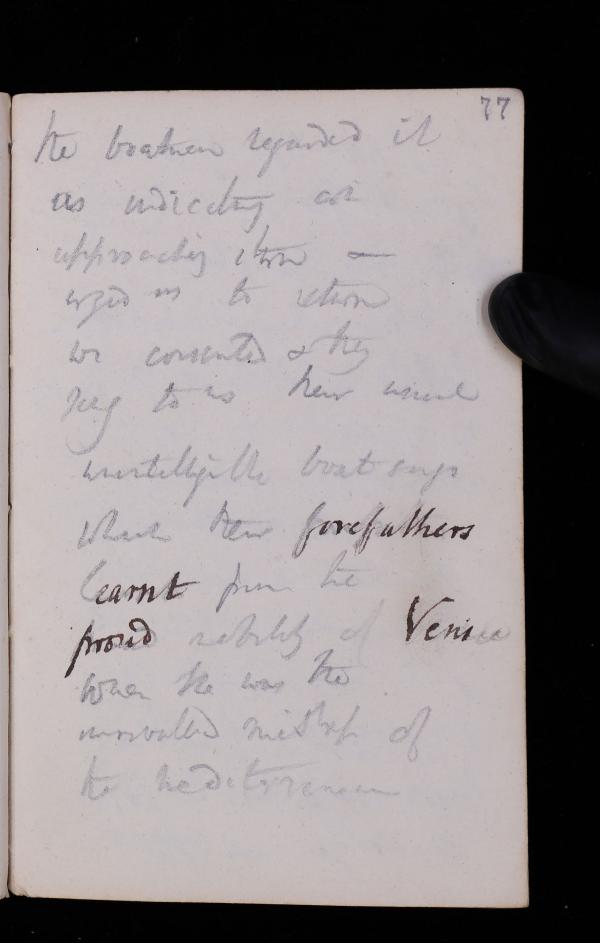 77
the boatmen regarded it
as indicating an
approaching storm —
urged us to return
we consented & they
sung to us their usual
unintelligible boat songs
which their forefathers
learnt from the
proud nobility of Venice
when she was the
unrivalled mistress of
the mediterranean